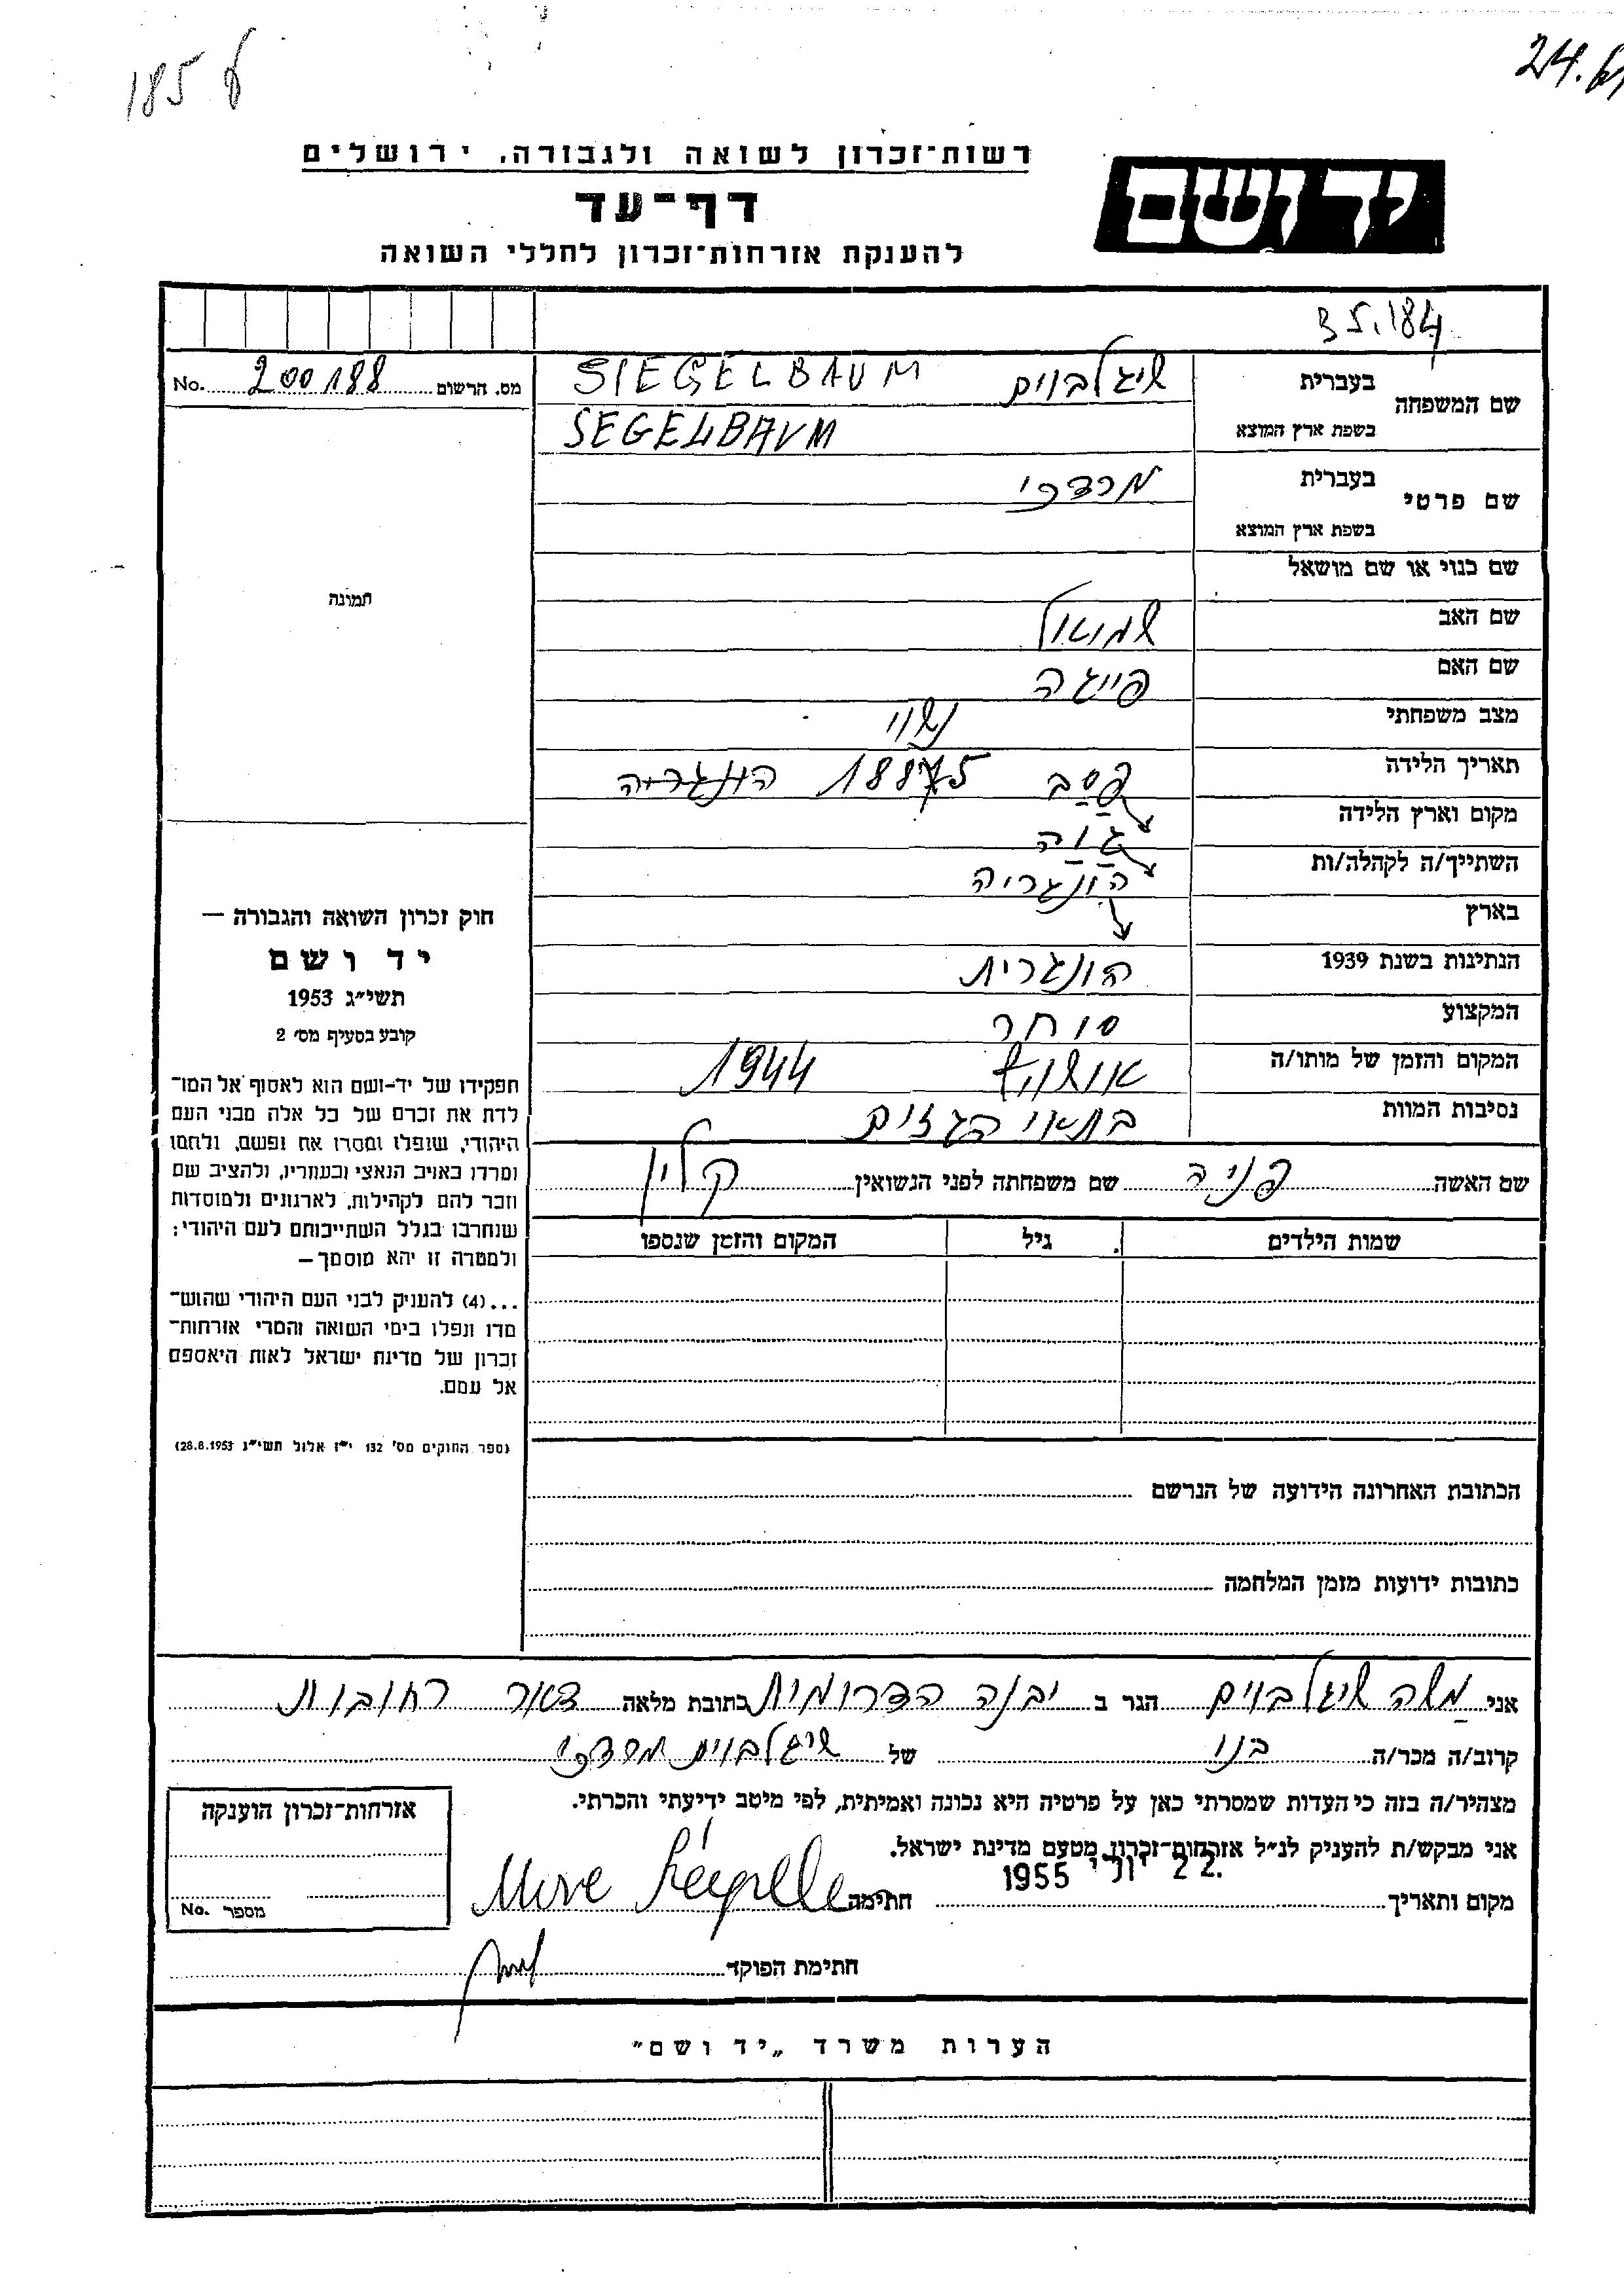 185 ט
24.
רשות־זכרון לשואה ולגבורה, ירושלים
יד ושם
דף־עד
להענקת אזרחות־זכרון לחללי השואה
35.184
שם המשפחה
בעברית שיגלבוים SIEGELBAUM
מס. הרשום 200188 No.
בשפת ארץ המוצא SEGELBAUM
שם פרטי
בעברית מרדכי
בשפת ארץ המוצא
שם כנוי או שם מושאל
תמונה
שם האב שמואל
שם האם פייגה
מצב משפחתי נשוי
תאריך הלידה הונגריה
מקום וארץ הלידה
השתייך/ה לקהלה/ות
הונגריה
בארץ
הנתינות בשנת 1939 הונגרית
המקצוע סוחר
המקום והזמן של מותו/ה אושויץ 1944
נסיבות המוות בתאי הגזים
שם האשה פניה שם משפחתה לפני הנשואין קלין
שמות הילדים גיל המקום והזמן שנספו
חוק זכרון השואה והגבורה —
יד ושם
תשי״ג 1953
קובע בסעיף מס׳ 2
תפקידו של יד-ושם הוא לאסוף אל המו־
לדת את זכרם של כל אלה מבני העם
היהודי, שנפלו ומסרו את נפשם, ולחמו
ומרדו באויב הנאצי ובעוזריו, ולהציב שם
וזכר להם לקהילות, לארגונים ולמוסדות
שנחרבו בגלל השתייכותם לעם היהודי;
ולמטרה זו יהא מוסמך —
...(4) להעניק לבני העם היהודי שהוש־
מדו ונפלו בימי השואה והמרי אזרחות־
זכרון של מדינת ישראל לאות היאספם
אל עמם.
(ספר החוקים מס׳ 132 י״ז אלול תשי״ג 28.8.1953)
הכתובת האחרונה הידועה של הנרשם
כתובות ידועות מזמן המלחמה
אני משה שיגלבוים הגר ב יבנה הדרומית כתובת מלאה דאר רחובות
קרוב/ה מכר/ה בנו של שיגלבוים מרדכי
מצהיר/ה בזה כי העדות שמסרתי כאן על פרטיה היא נכונה ואמיתית, לפי מיטב ידיעתי והכרתי.
אני מבקש/ת להעניק לנ״ל אזרחות־זכרון מטעם מדינת ישראל.
22 יוני 1955
מקום ותאריך חתימה
אזרחות־זכרון הוענקה
מספר No.
חתימת הפוקד
הערות משרד „יד ושם״